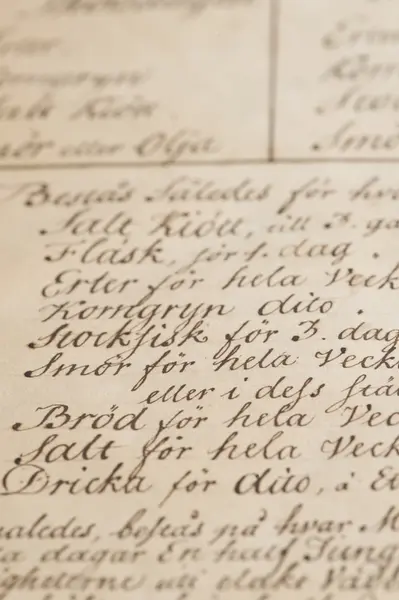 Korngryn
Salt Kiött
Smör eller Olja
Smö
Bestås Således för hva
Salt Kiött, till 3. ga
Fläsk, för 1. dag.
Erter för hela Veck
Korngryn dito.
Stockfisk för 3. dag
Smör för hela Vecka
eller i dess stäl
Bröd för hela Vec
Salt för hela Veck
Dricka för dito, å Et
bestås på hvar M
dagar En half Jung